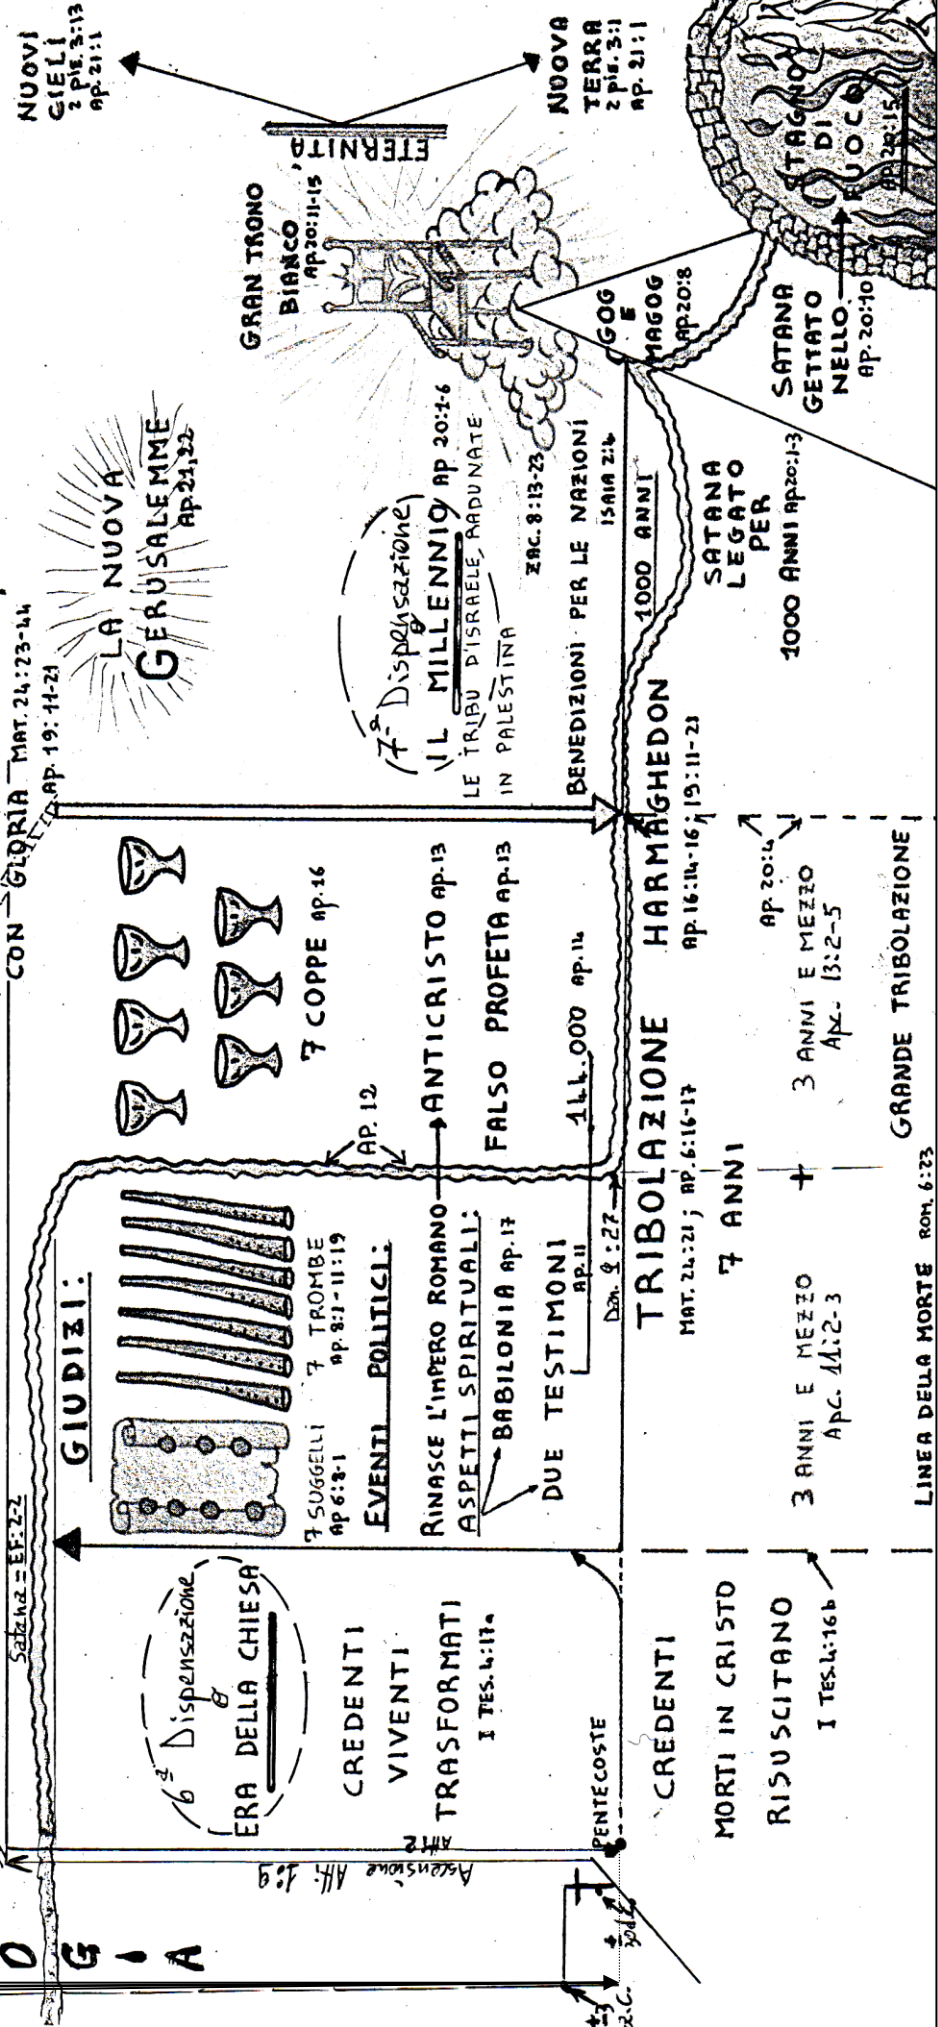 O
G
I
A
CON GLORIA MAT. 24:23-44
Ap. 19:11-21
Satana = EF: 2-2
Ascensione Atti 1:9
Atti 2
PENTECOSTE
6ª Dispensazione
o
ERA DELLA CHIESA
CREDENTI
VIVENTI
TRASFORMATI
I TES. 4:17a
CREDENTI
MORTI IN CRISTO
RISUSCITANO
I TES. 4:16b
GIUDIZI:
7 SUGGELLI
Ap 6:8-1
7 TROMBE
Ap. 8:1-11:19
7 COPPE Ap. 16
EVENTI POLITICI:
RINASCE L'IMPERO ROMANO
ANTICRISTO Ap. 13
ASPETTI SPIRITUALI:
BABILONIA Ap. 17
FALSO PROFETA Ap. 13
DUE TESTIMONI
Ap. 11
144.000 Ap. 14
AP. 12
Dan. 9:27
TRIBOLAZIONE
MAT. 24:21; AP. 6:16-17
7 ANNI
3 ANNI E MEZZO
Apc. 11:2-3
+
3 ANNI E MEZZO
Apc. 13:2-5
GRANDE TRIBOLAZIONE
LINEA DELLA MORTE ROM. 6:23
HARMAGHEDON
Ap. 16:14-16; 19:11-21
Ap. 20:4
LA NUOVA
GERUSALEMME
Ap. 21,22
7ª Dispensazione
o
IL MILLENNIO Ap 20:1-6
LE TRIBU D'ISRAELE, RADUNATE
IN PALESTINA
ZAC. 8:13-23
BENEDIZIONI PER LE NAZIONI
ISAIA 2:4
1000 ANNI
SATANA
LEGATO
PER
1000 ANNI Ap 20:1-3
GRAN TRONO
BIANCO
Ap. 20:11-15
GOG
E
MAGOG
Ap. 20:8
SATANA
GETTATO
NELLO
Ap. 20:10
STAGNO
DI
FUOCO
Ap. 20:15
ETERNITÀ
NUOVI
CIELI
2 Pie. 3:13
Ap. 21:1
NUOVA
TERRA
2 Pie. 3:1
Ap. 21:1